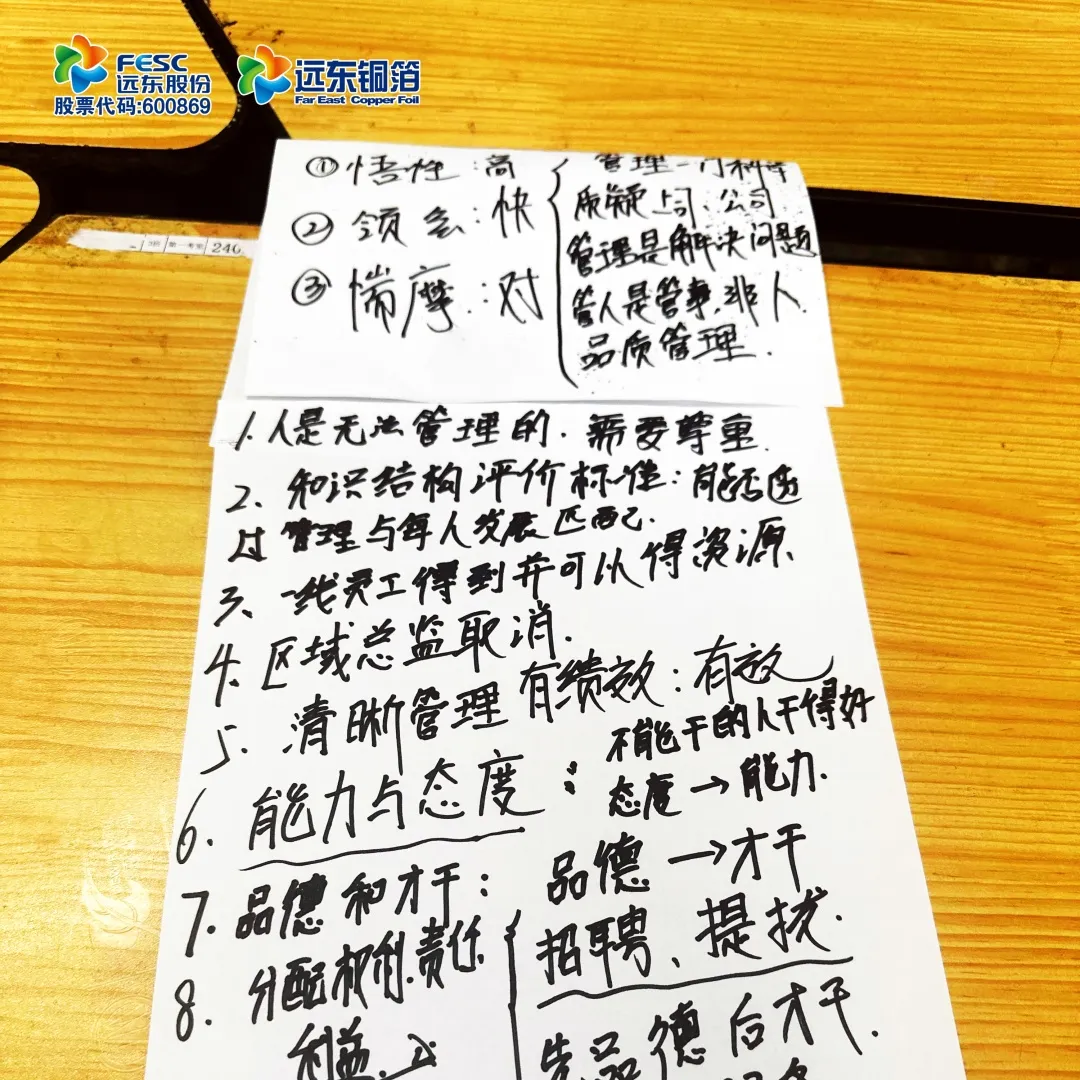 FESC
远东股份
股票代码:600869
远东铜箔
Far East Copper Foil
第一考室 240
①悟性:高
②领会:快
③惴摩:对
管理一门科学
质疑上司、公司
管理是解决问题
管人是管事,非人.
品质管理.
1.人是无法管理的.需要尊重.
2、知识结构评价标准:能否透
过管理与每人发展匹配.
3、一线员工得到并可以得资源
4.区域总监取消.
5、清晰管理有绩效:有效
6.能力与态度:
不能干的人干得好
态度→能力.
7.品德和才干:
品德→才干
招聘、提拔.
8.分配权利.责任.
利益.
先品德后才干.